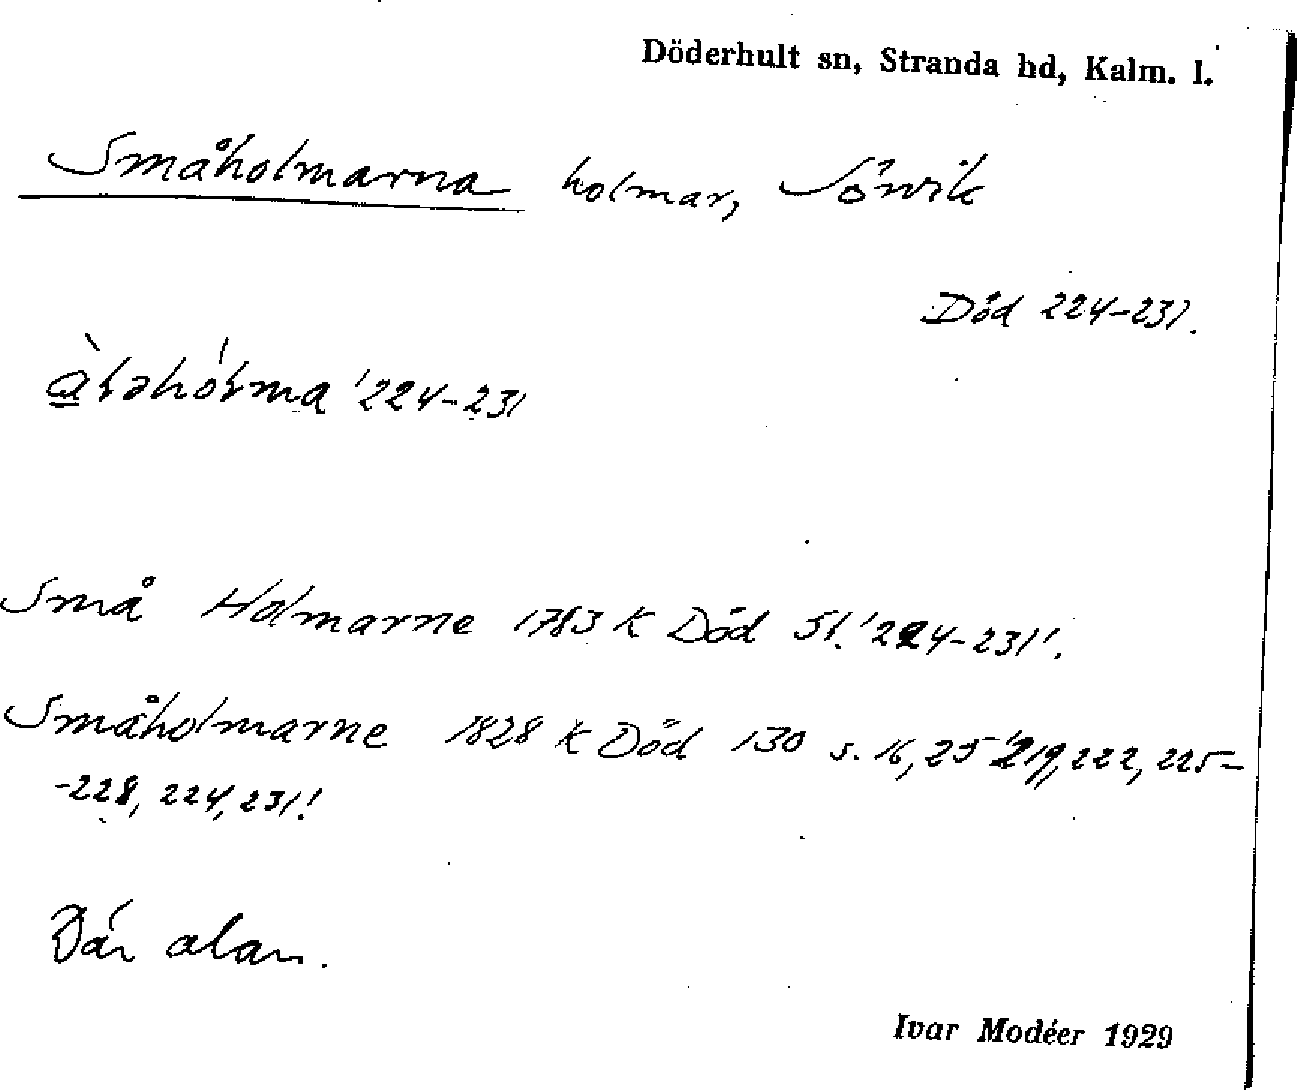 Döderhult sn, Stranda hd, Kalm. l.
Småholmarna holmar, Sörvik
Död 224-231.
'224-231
Små Holmarne 1783 K Död 51.'224-231'.
Småholmarne 1828 K Död 130 s. 16, 25 '219, 222, 225-
-228, 224, 231!
alar.
Ivar Modéer 1929